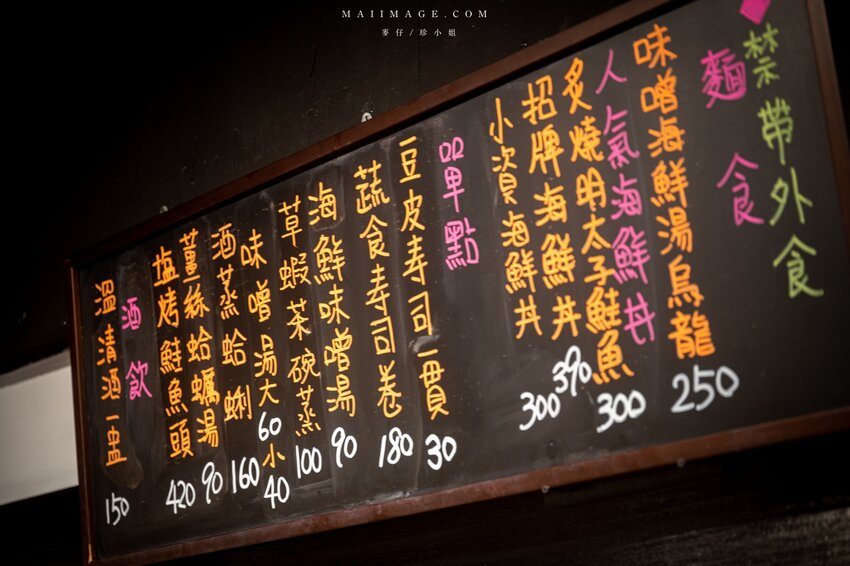 MAIIMAGE.COM
麥仔/珍小姐
禁帶外食
麵食
味噌海鮮湯烏龍 250
人氣海鮮丼
炙燒明太子鮭魚 300
招牌海鮮丼 390
小資海鮮丼 300
單點
豆皮壽司一貫 30
蔬食壽司卷 180
海鮮味噌湯 90
草蝦茶碗蒸 100
味噌湯大60小40
酒蒸蛤蜊 160
薑絲蛤蠣湯 90
塩烤鮭魚頭 420
酒飲
溫清酒一盅 150